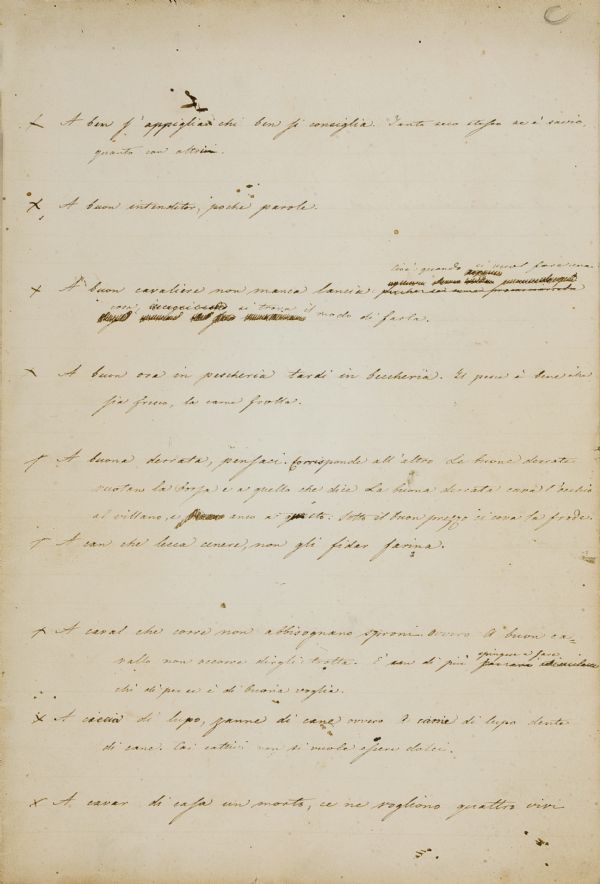 A ben s'appiglia chi ben si consiglia. Tanto seco stesso se è savio,
quanto con altrui.
A buon intenditor, poche parole.
Cioè quando si vuol fare una
A buon cavaliere non manca lancia
cosa, si trova il modo di farla.
A buon ora in pescheria tardi in beccheria. Il pesce è bene che
sia fresco, la carne frolla.
A buona derrata, pensaci. Corrisponde all'altro Le buone derrate
vuotan la borsa e a quello che dice La buona derrata cava l'occhio
al villano, e anco a: Sotto il buon prezzo ci cova la frode.
A can che lecca cenere, non gli fidar farina.
A caval che corre non abbisognano sproni ovvero A buon ca-
vallo non occorre dirgli trotta. E di più
spingere a fare
chi di per se è di buona voglia.
A ciccia di lupo, zanne di cane ovvero A carne di lupo dente
di cane. Coi cattivi non si vuole essere dolci.
A cavar di casa un morto, ce ne vogliono quattro vivi